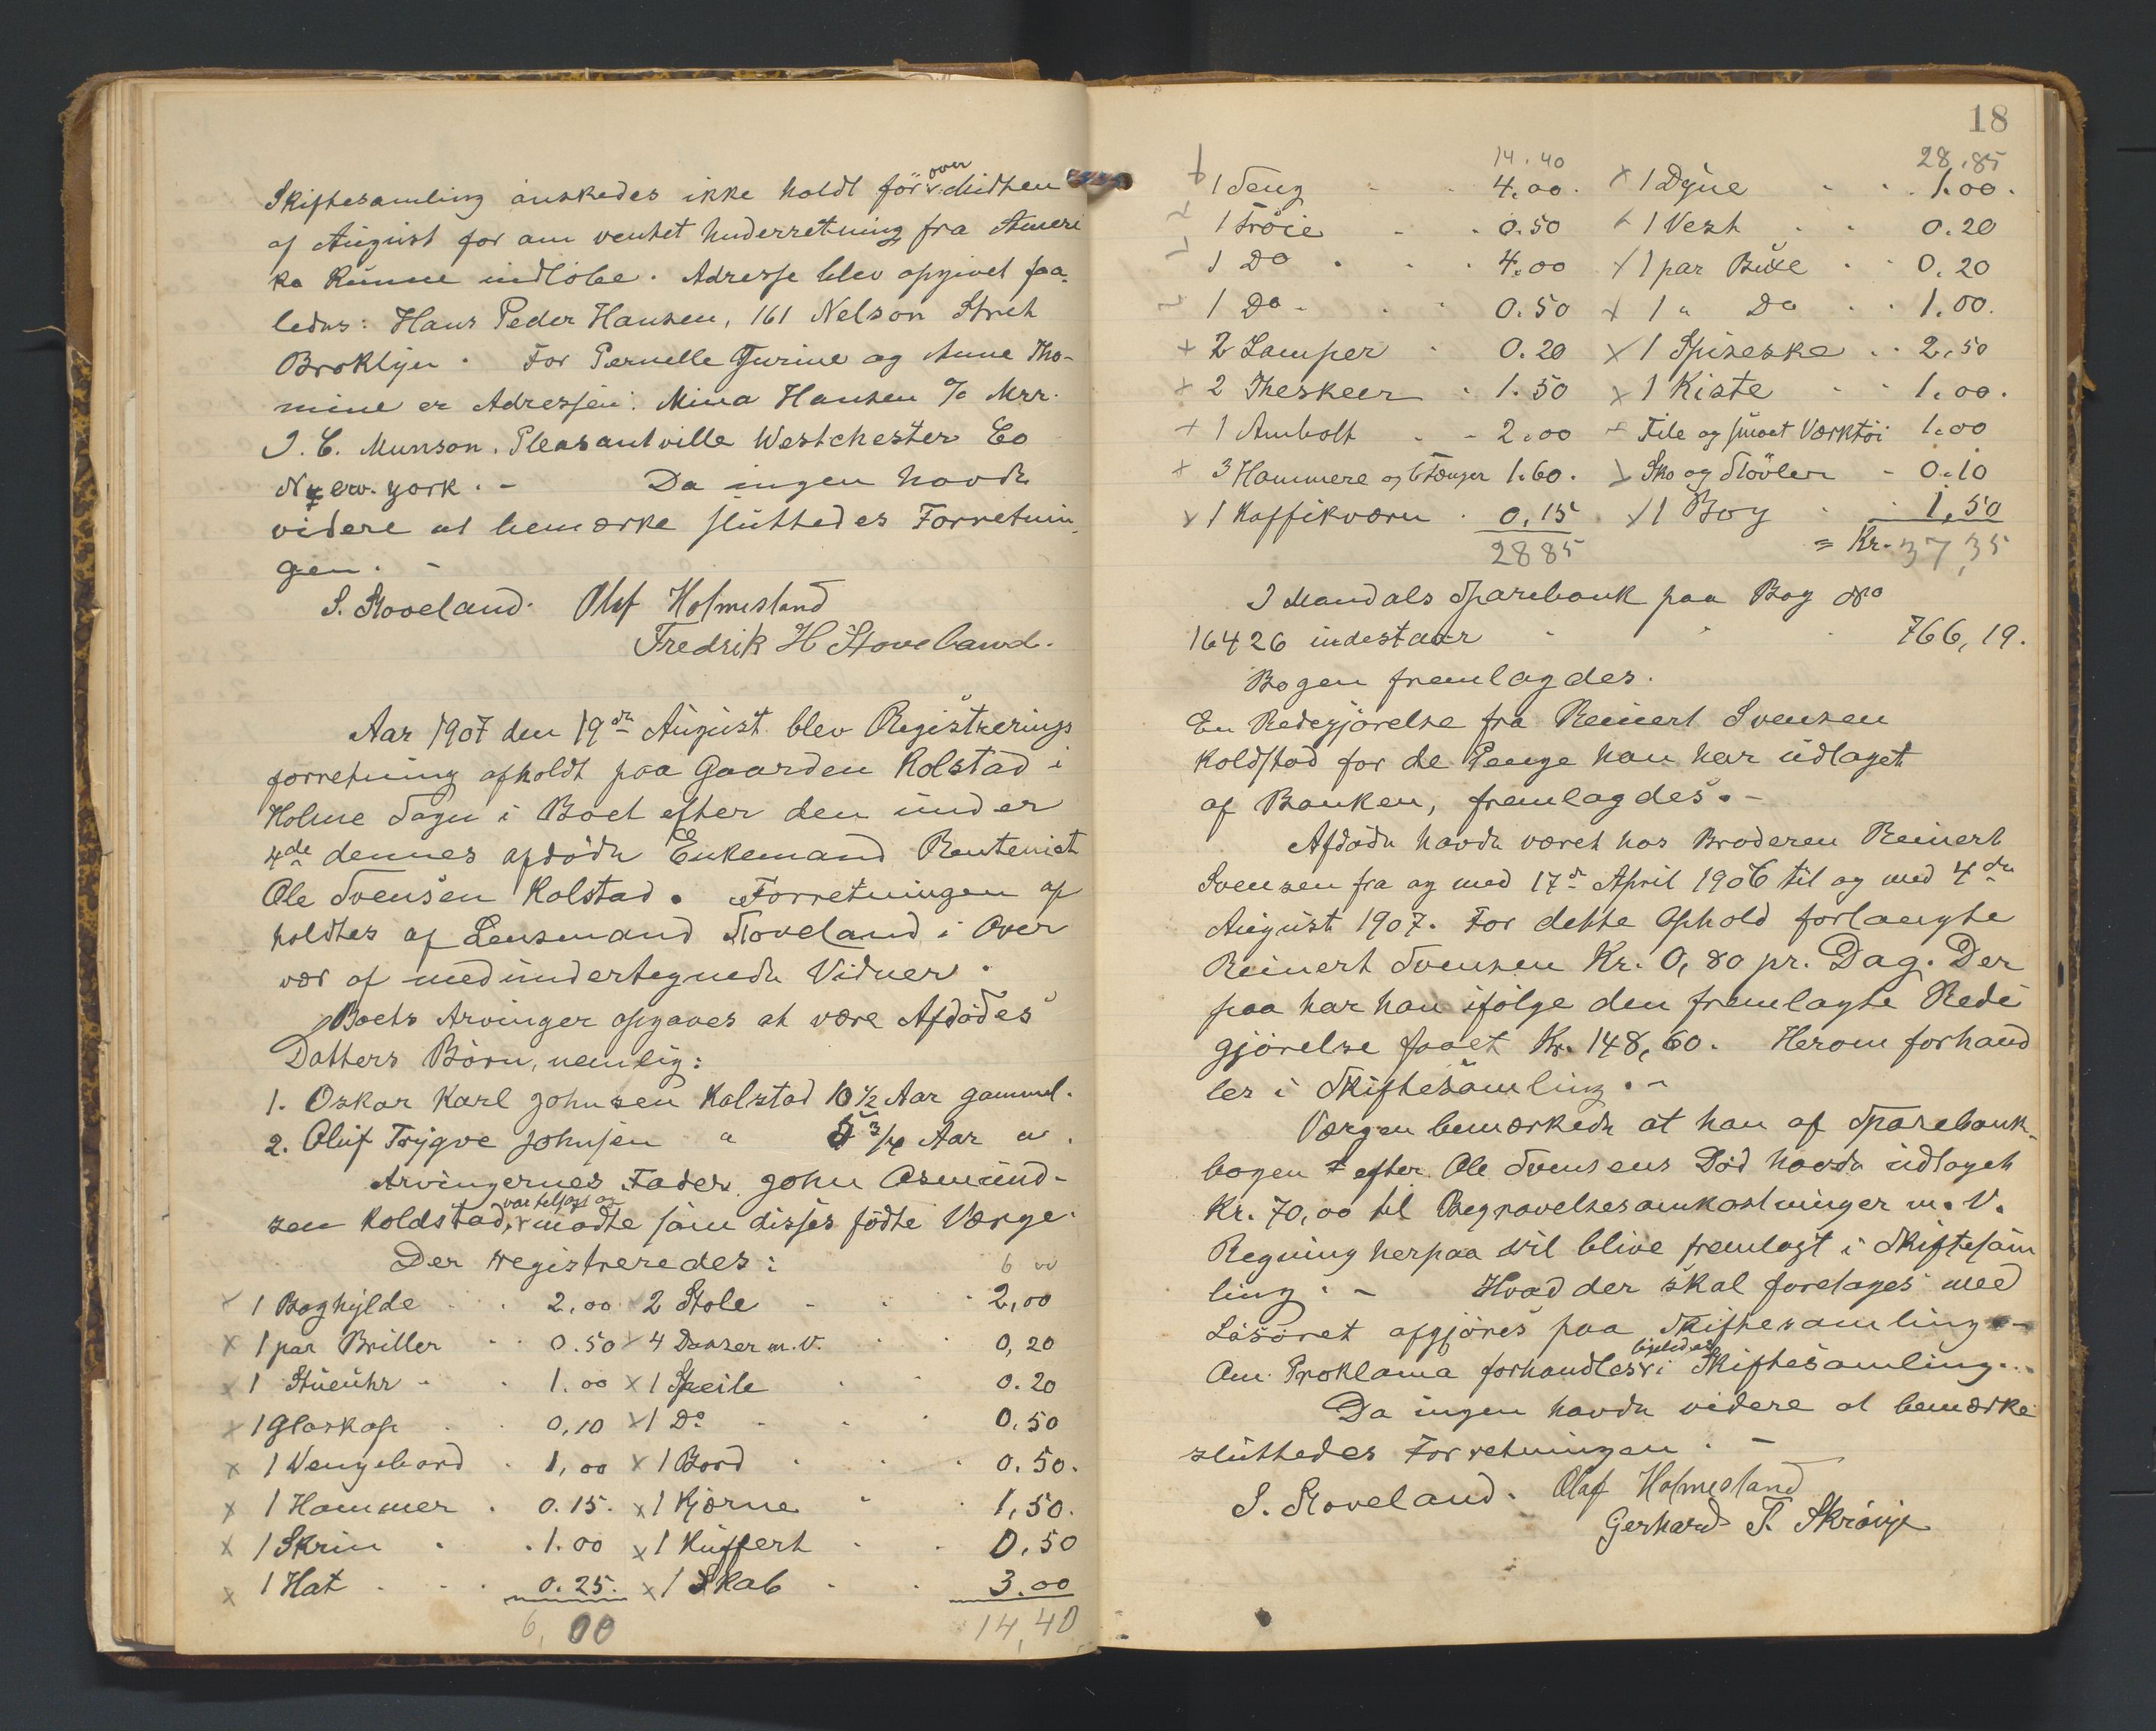 Skiftesamling ønskedes ikke holdt før over Midten
af August for om ventet Underretning fra Ameri
ka kunne indløbe. Adresse blev opgivet saa-
ledes: Hans Peder Hansen, 161 Nelson Stret
Broklyn. For Pernelle Turine og Anne Tho-
mine er Adressen: Mina Hansen c/o Mrr.
J. C. Munson. Pleasantville Westchester Co
New. york. - Da ingen havde
videre at bemærke sluttedes Forretnin
gen. -
S. Stoveland. Olaf Holmesland
Fredrik H Stoveland.
Aar 1907 den 19de August blev Registrerings
forretning afholdt paa Gaarden Kolstad i
Holme Sogn i Boet efter den under
4de dennes afdøde Enkemand Rentenist
Ole Svensen Kolstad. Forretningen af
holdtes af Lensmand Stoveland i Over
vær af medundertegnede Vidner.
Boets Arvinger opgaves at være Afdødes
Datters Børn, nemlig:
1. Oskar Karl Johnsen Kolstad 10 1/2 Aar gammel.
2. Oluf Trygve Johnsen " 5 3/4 Aar " .
Arvingernes Fader John Asmund-
sen Koldstad, var tilsagt og mødte som disses fødte Værge.
Der registreredes:
6 00
x 1 Boghylde . . 2,00 2 Stole - . . 2,00
x 1 par Briller . . 0.50 x 4 Daaser m.V. . . 0,20
x 1 Stueuhr - . 1.00 x 1 Speile . . 0.20
x 1 Glaskop . . 0,10 x 1 Do - . . 0.50
x 1 Vengebord . 1,00 x 1 Bord . . . 0.50.
x 1 Hammer . 0.15. x 1 Kjørne . . 1,50.
x 1 Skrin . . 1.00 x 1 Kuffert . . 0,50
x 1 Hat . . . 0.25. x 1 Skab . . 3.00
6,00 14,40
18
14.40 28,85
1 Seng - - 4.00. x 1 Dyne . . 1.00.
1 Trøie - . 0.50 x 1 Vest . . 0.20
1 Do . . . 4.00 x 1 par Buxe . . 0.20
1 Do - . . 0.50 x 1 " Do . . 1.00.
x 2 Lamper . 0.20 x 1 Spiseske . . 2,50
x 2 Theskeer . 1.50 x 1 Kiste . . 1.00.
x 1 Ambolt . - 2.00 x File og smaat Værktøi 1.00
x 3 Hammere og 6 Tænger 1.60. x Sko og Støvler - 0.10
x 1 Kaffikværn . 0,15 . x 1 Bog . . 1,50
2885 = Kr. 37,35
I Mandals Sparebank paa Bog No
16426 indestaar . . . 766,19.
Bogen fremlagdes.
En Redegjørelse fra Reinert Svensen
Koldstad for de Penge han har udtaget
af Banken, fremlagdes. -
Afdøde havde været hos Broderen Reinert
Svensen fra og med 17de April 1906 til og med 4de
August 1907. For dette Ophold forlangte
Reinert Svensen Kr. 0,80 pr. Dag. Der
paa har han ifølge den fremlagte Rede
gjørelse faaet Kr. 148,60. Herom forhand
les i Skiftesamling. -
Værgen bemærkede at han af Sparebank-
bogen efter Ole Svensens Død havde udtaget
Kr. 70,00 til Begravelsesomkostninger m. V.
Regning herpaa vil blive fremlagt i Skiftesam
ling. - Hvad der skal foretages med
Løsøret afgjøres paa Skiftesamling. -
Om Proklama forhandles ligeledes i Skiftesamling. .
Da ingen havde videre at bemærke
sluttedes Forretningen. -
S. Stoveland. Olaf Holmesland
Gerhard T. Skrøvje